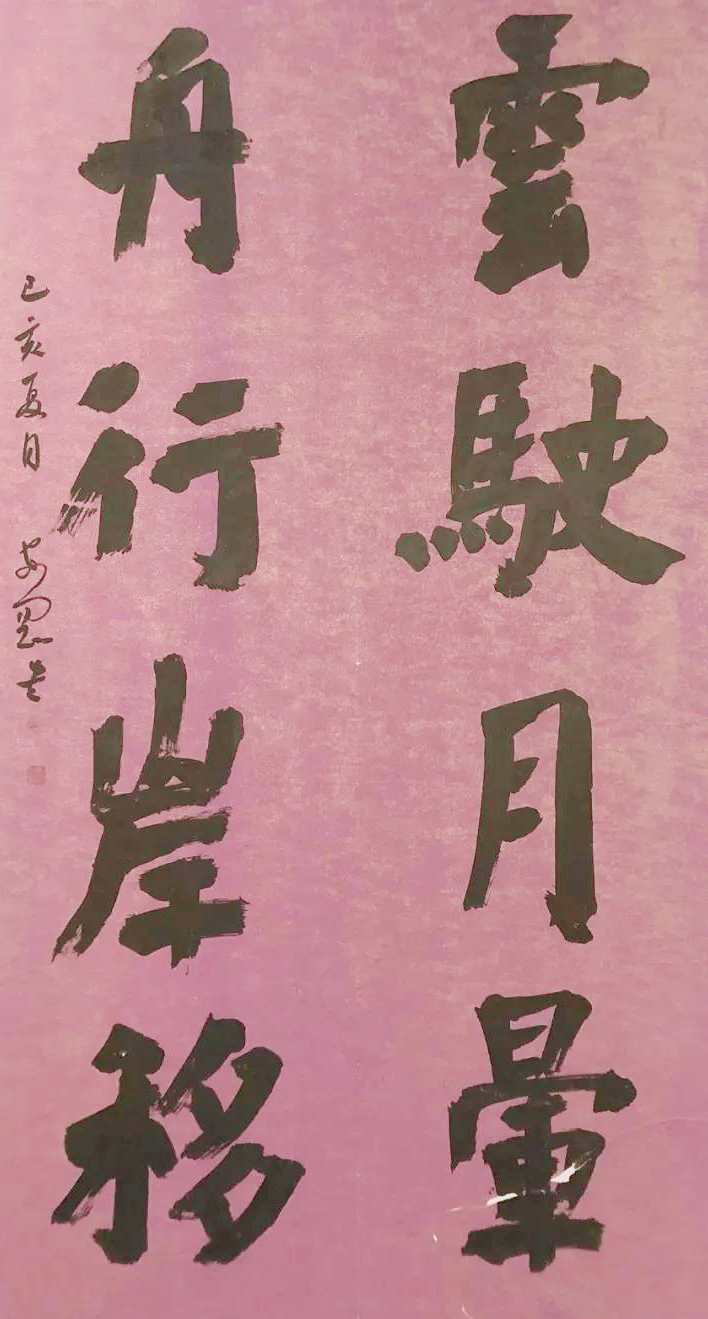 雲駛月暈
舟行岸移
己亥夏月